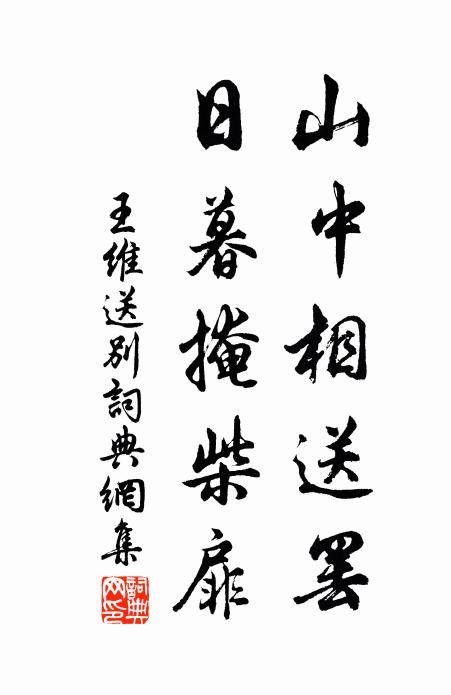 山中相送罢
日暮掩柴扉
王維送别詞典網集
詞典网印